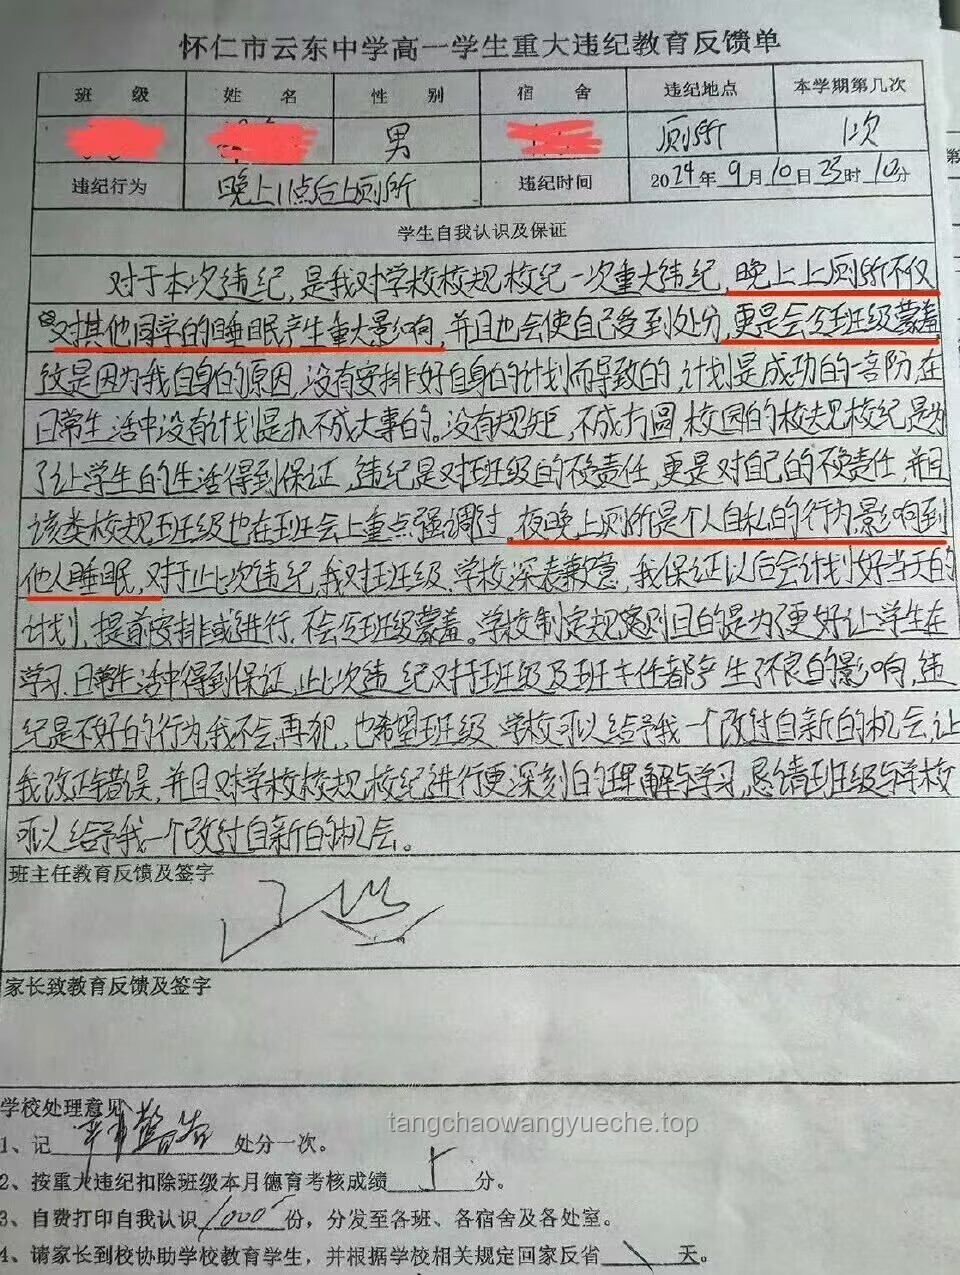 怀仁市云东中学高一学生重大违纪教育反馈单
班 级 姓 名 性 别 宿 舍 违纪地点 本学期第几次
男 厕所 1次
违纪行为 晚上11点后上厕所 违纪时间 2024年9月10日23时10分
学生自我认识及保证
对于本次违纪,是我对学校校规校纪一次重大违纪,晚上上厕所不仅
对其他同学的睡眠产生重大影响,并且也会使自己受到处分,更是会令班级蒙羞
这是因为我自身的原因,没有安排好自身的计划而导致的,计划是成功的一部份,在
日常生活中没有计划是办不成大事的。没有规矩,不成方圆,校园的校规校纪是为
了让学生的生活得到保证,违纪是对班级的不负责任,更是对自己的不负责任,并且
该类校规班级也在班会上重点强调过,夜晚上厕所是个人自私的行为,影响到
他人睡眠,对于此次违纪,我对班级、学校深表歉意,我保证以后会计划好当天的
计划,提前安排或进行,不会令班级蒙羞。学校制定规定目的是为了更好让学生在
学习、日常生活中得到保证,此次违纪对班级及班主任都产生了不良的影响,违
纪是不好的行为,我不会再犯,也希望班级、学校可以给予我一个改过自新的机会,让
我改正错误,并且对学校校规校纪进行更深刻的理解与学习,恳请班级与学校
可以给予我一个改过自新的机会。
班主任教育反馈及签字
家长致教育反馈及签字
学校处理意见
1、记 严重警告 处分一次。
2、按重大违纪扣除班级本月德育考核成绩 5 分。
3、自费打印自我认识 1000 份,分发至各班、各宿舍及各处室。
4、请家长到校协助学校教育学生,并根据学校相关规定回家反省 \ 天。
tangchaowangyueche.top